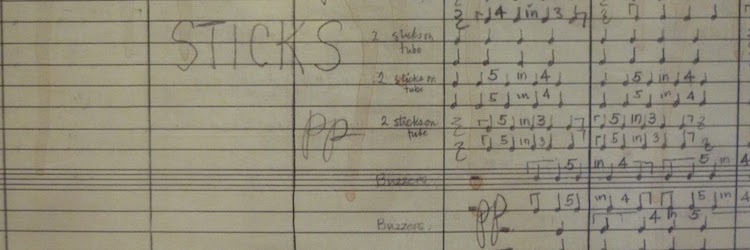 4 in 3
STICKS
2 sticks on
tube
2 sticks on
tube
5 in 4 5 in 4
5 in 4 5 in 4
pp
2 sticks on
tube
5 in 3 5 in 3
5 in 3 5 in 3
Buzzers
5 in 4 5 in 4
pp
5 in 4 5 in 4
Buzzers.
4 in 5